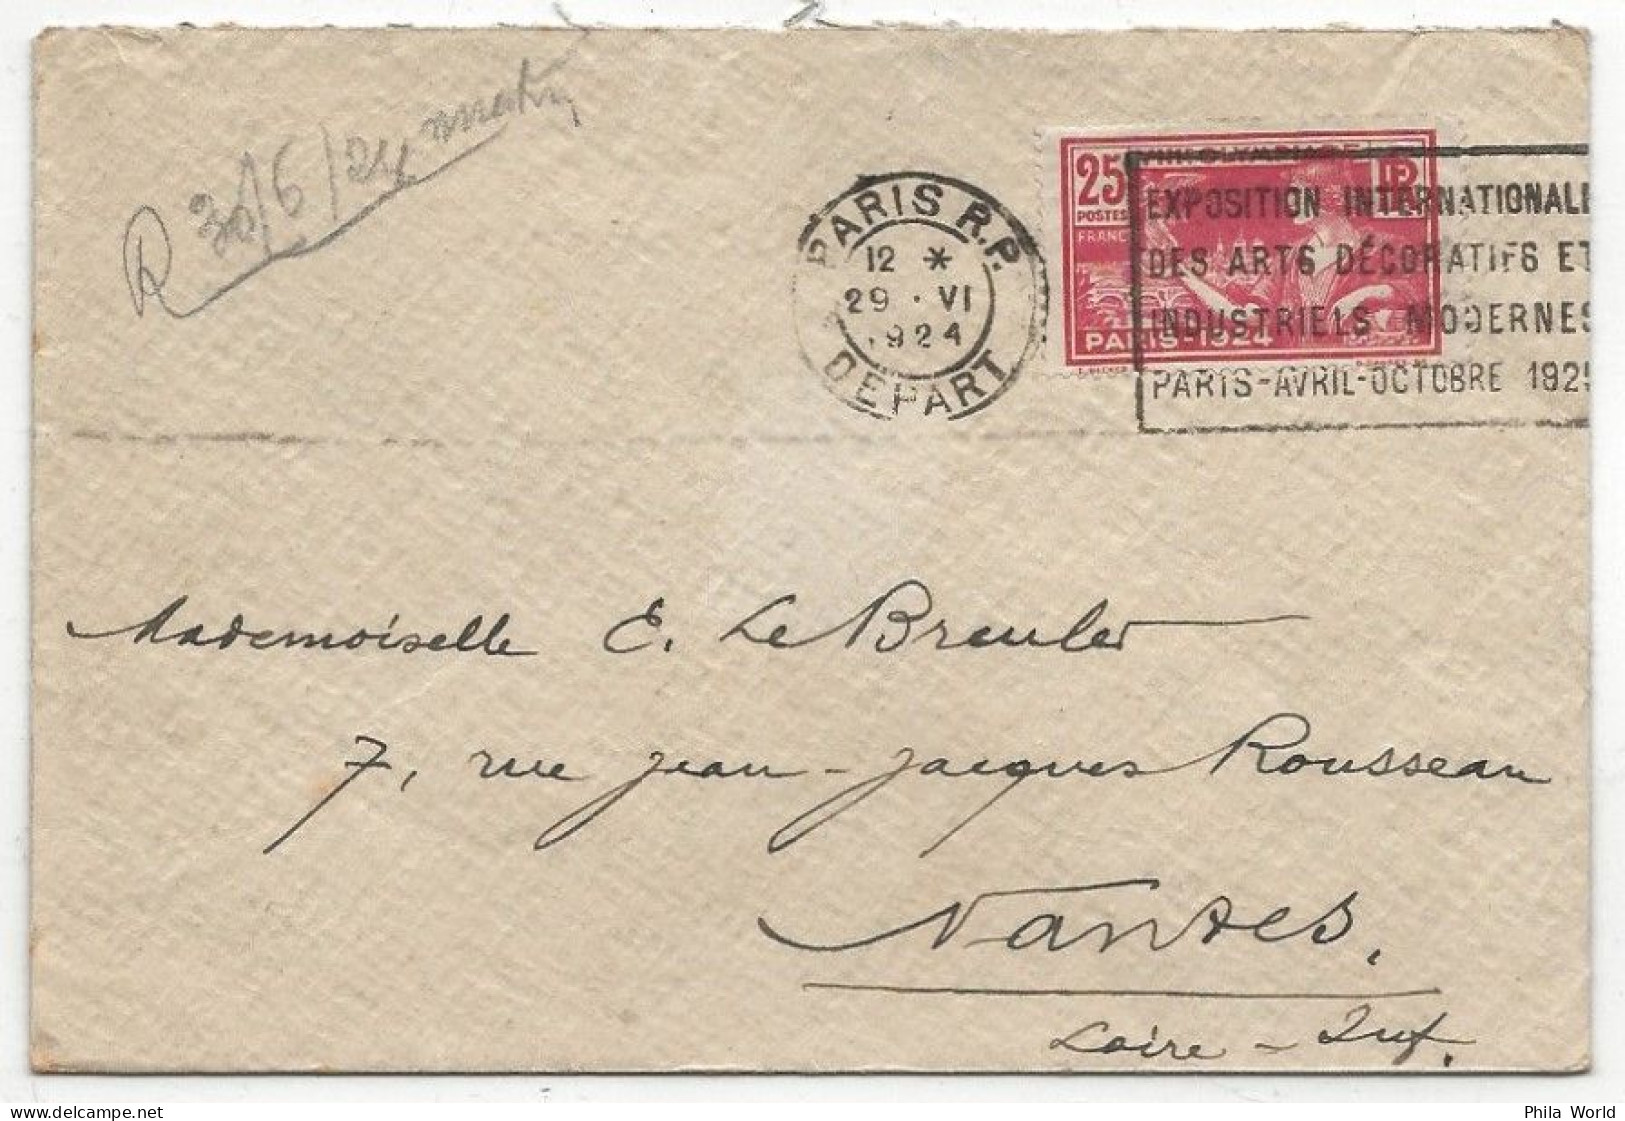 R 30/6/24 matin
PARIS R.P.
12 *
29 · VI
1924
DEPART
25
POSTES
FRANC
VIIIe OLYMPIADE
PARIS-1924
EXPOSITION INTERNATIONALE
DES ARTS DÉCORATIFS ET
INDUSTRIELS MODERNES
PARIS-AVRIL-OCTOBRE 1925
Mademoiselle E. Le Breuler
7, rue Jean-Jacques Rousseau
Nantes,
Loire-Inf.
Phila World